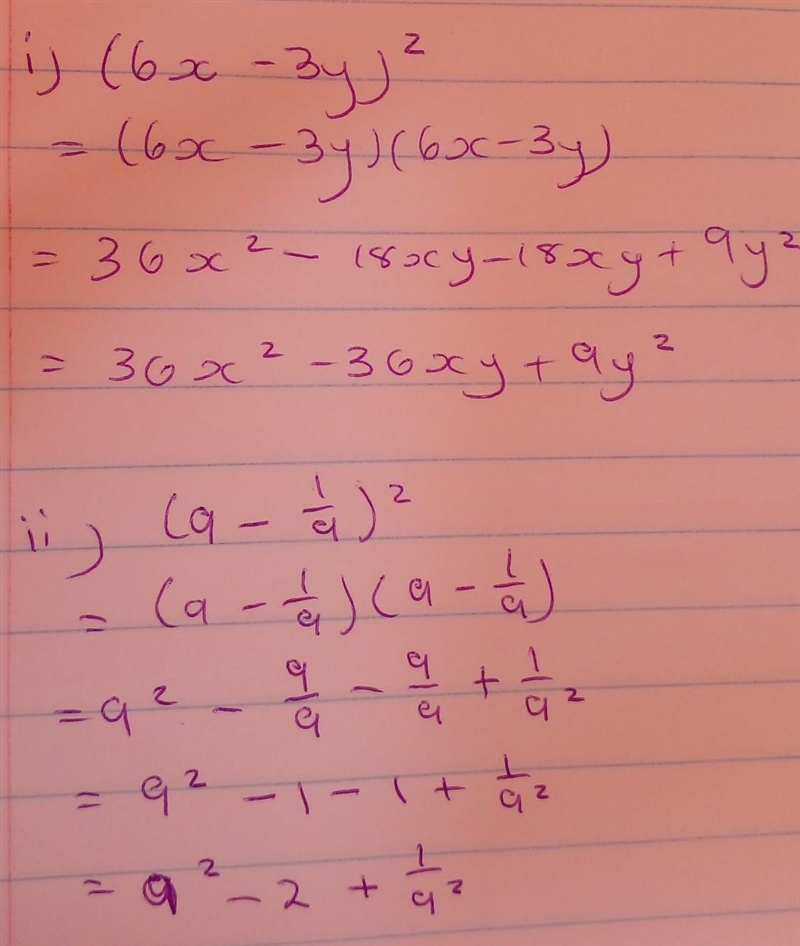 i) (6x - 3y)²
= (6x - 3y)(6x - 3y)
= 36x² - 18xy - 18xy + 9y²
= 36x² - 36xy + 9y²
ii) (a - 1/a)²
= (a - 1/a)(a - 1/a)
= a² - a/a - a/a + 1/a²
= a² - 1 - 1 + 1/a²
= a² - 2 + 1/a²